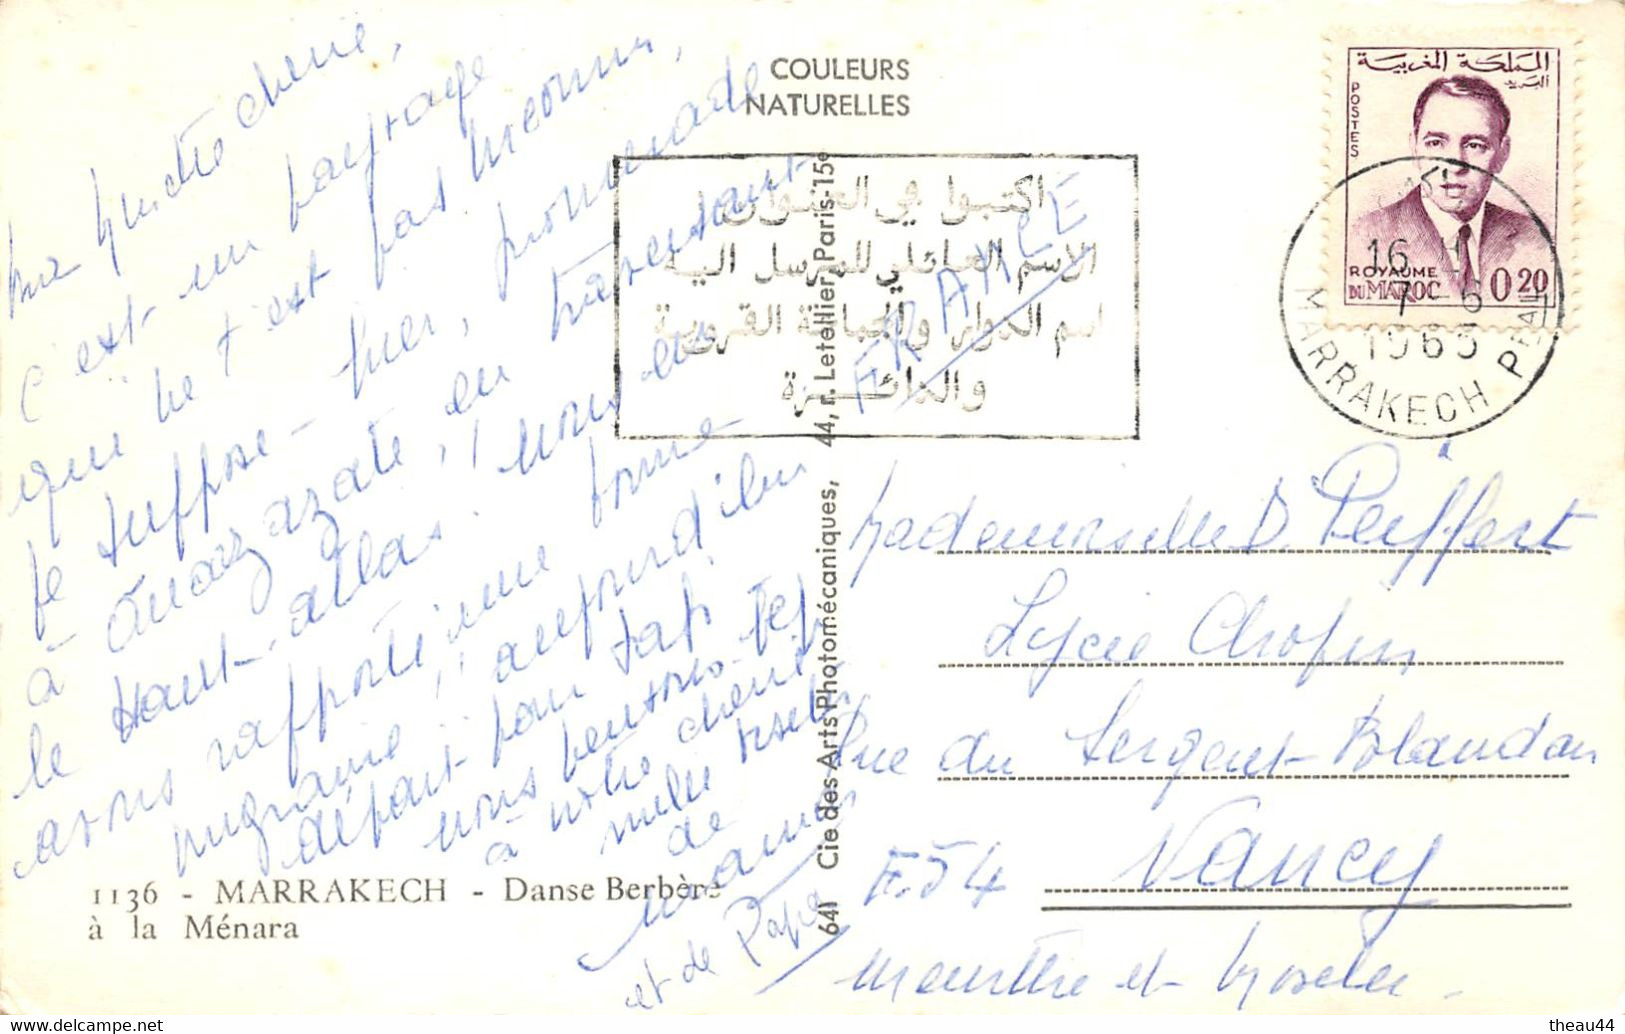 Ma chère,
c'est un paysage
que ne t'est pas inconnu,
je suppose - hier, promenade
à Ouarzazate, en traversant
le Haut-Atlas. Nous en
avons rapporté une bonne
migraine ; aujourd'hui
départ pour Safi
nous pensons
à notre chérie
mille
de
Maman
et de Papa
1136 - MARRAKECH - Danse Berbère
à la Ménara
COULEURS
NATURELLES
641 Cie des Arts Photomécaniques, 44, r. Letellier, Paris-15e
اكتبوا في العنوان
الاسم العائلي للمرسل اليه
اسم الدوار والجماعة القروية
والدائرة
المملكة المغربية
البريد
POSTES
ROYAUME
DU MAROC 0,20
16 H
7 - 6
1965
MARRAKECH PPAL
FRANCE
Mademoiselle D. Peiffert
Lycée Chopin
Rue du Sergent-Blandan
F.54 Nancy
Meurthe et Moselle.
theau44